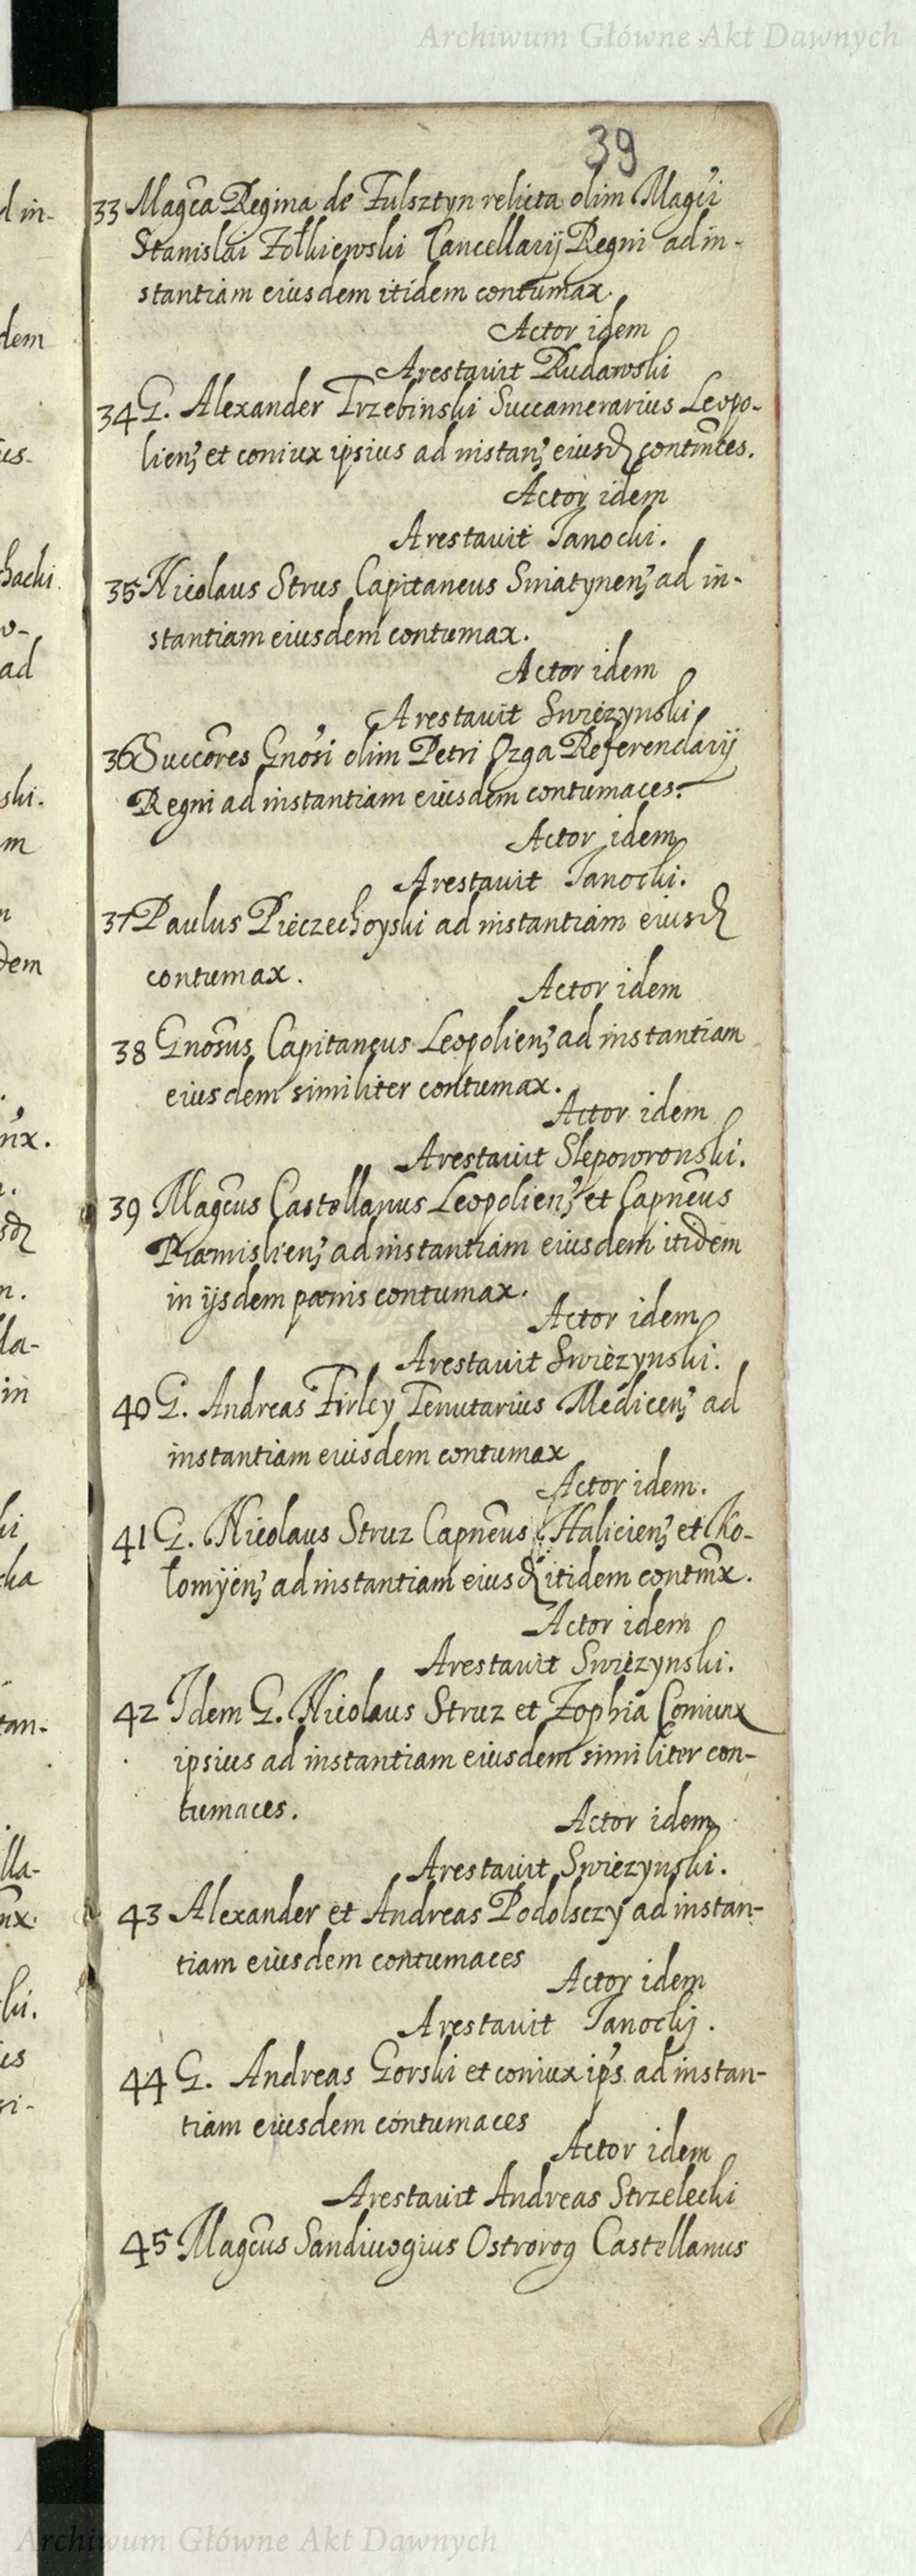 Archiwum Główne Akt Dawnych
39
33 Magča Regina de Fulsztyn relicta olim Magči
Stanislai Zołkiewski Cancellarij Regni ad in-
stantiam eiusdem itidem contumax.
Actor idem
Arestauit Rudawski
34 G. Alexander Trzebinski Succamerarius Leopo-
lien̄ et coniux ipsius ad instan̄ eiusd contm̄ces.
Actor idem
Arestauit Janocki.
35 Nicolaus Strus Capitaneus Sniatynen̄ ad in-
stantiam eiusdem contumax.
Actor idem
Arestauit Swiezynski
36 Succōres Gnōsi olim Petri Ozga Referendarij
Regni ad instantiam eiusdem contumaces.
Actor idem
Arestauit Janocki.
37 Paulus Pieczechoyski ad instantiam eiusd
contumax.
Actor idem
38 Gnōsus Capitaneus Leopolien̄ ad instantiam
eiusdem similiter contumax.
Actor idem
Arestauit Slepowronski.
39 Magčus Castellanus Leopolien̄ et Capnēus
Præmislien̄ ad instantiam eiusdem itidem
in ijsdem pænis contumax.
Actor idem
Arestauit Swiezynski.
40 G. Andreas Firley Tenutarius Medicen̄ ad
instantiam euisdem contumax
Actor idem.
41 G. Nicolaus Struz Capnēus Halicien̄ et Ko-
łomijen̄ ad instantiam eiusd itidem contm̄x.
Actor idem
Arestauit Swiezynski.
42 Idem G. Nicolaus Struz et Zophia Coniunx
ipsius ad instantiam eiusdem similiter con-
tumaces.
Actor idem
Arestauit Swiezynski.
43 Alexander et Andreas Podolsczy ad instan-
tiam eiusdem contumaces
Actor idem
Arestauit Janockj.
44 G. Andreas Gorski et coniux ip̄s ad instan-
tiam eiusdem contumaces
Actor idem
Arestauit Andreas Strzelecki
45 Magčus Sandiuogius Ostrorog Castellanus
Archiwum Główne Akt Dawnych